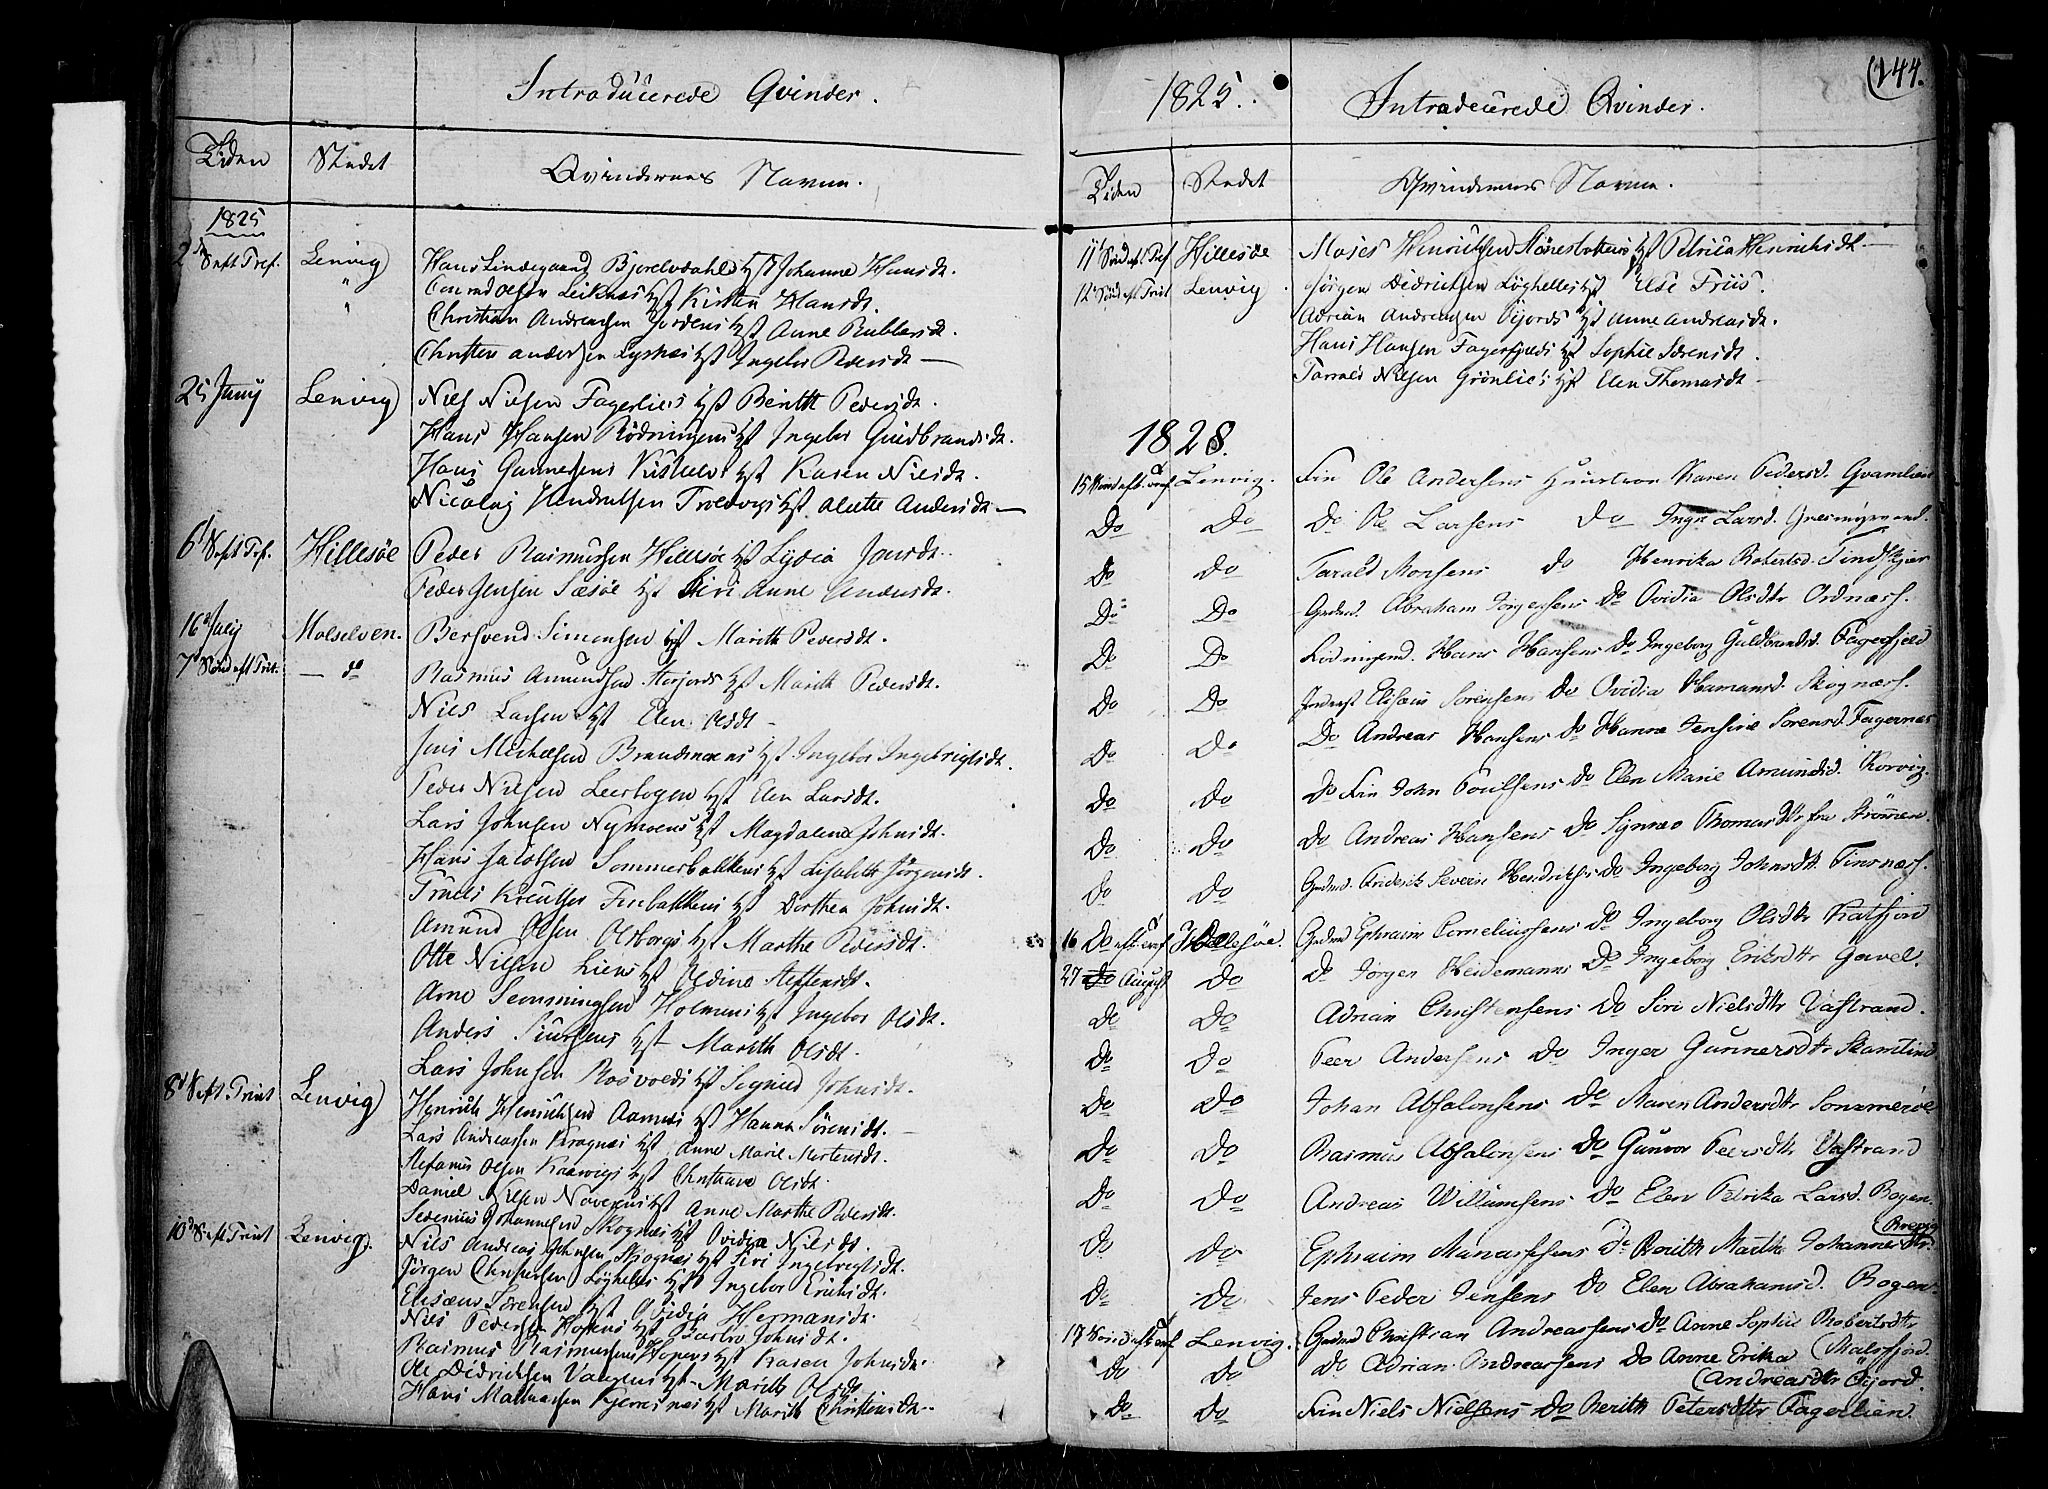 Introducerede Qvinder.
Tiden Stedet Qvindernes Navne.
1825
2d S. eft Tref. Lenvig Hans Lindegaard Bjorelvdahls Hst Johanne Hansdt.
" Conrad Olsen Leiknæs Hst Kirsten Hansdt.
" Christian Andreasen Jordens Hst Anne
Christen Andersen Hst Ingebor Pedersdt —
25 Junij Lenvig Niels Nilsen Fagerlies Hst Berith Pedersdt.
Hans Hansen Rødningens Hst Ingebor Guldbrandsdt.
Hans Gunnersens Hst Karen Nilsdt.
Nicolay Hendrichsen Hst Olette Andersdt —
6t S. eft Tref. Hillesøe Peder Rasmussen Hillesøe Hst Lydia Jonsdt.
Peder Jensen Sæsøe Hst Siri Anne Andersdt.
16d July Molselven. Bersvend Simensen Hst Marith Pedersdt.
7d Sønd eft Trit. — do Rasmus Amundsen Hst Marith Pedersdt.
Nils Larsen Hst Elen Olsdt —
Jens Mechelsen Brandmoens Hst Ingebor Ingebrigtsdt.
Peder Nilsen Hst Elen Larsdt.
Lars Johnsen Nymoens Hst Magdalena Johnsdt.
Hans Jacobsen Sommerbakkens Hst Lisabeth Jørgensdt.
Truels Knutsen Finbakkens Hst Dorthea Johnsdt.
Amund Olsen Olsborgs Hst Marthe Pedersdt.
Otte Nilsen Liens Hst Oldine Steffensdt.
Arne Semmingsen Holmens Hst Ingebor Olsdt.
Anders Siursens Hst Marith Olsdt.
Lars Johnsen Rosvolds Hst Segnied Johnsdt.
8d S. eft. Trint Lenvig Henrich Henrichsen Aarnæs Hst Hanna Sørensdt. —
Lars Andreassen Kragnæs Hst Anne Marie Mortensdt.
Stefanus Olsen Kaarvigs Hst Christiane Olsdt.
Daniel Nilsen Hst Anne Marthe Pedersdt.
Johannesen Skognæs Hst Ovidia Nilsdt.
10d S. eft Trint Lenvig. Nils Andreas Johnsen Skognæs Hst Siri Ingebrigtsdt.
Jørgen Christensen Løghelles Hst Ingebor Erichsdt.
Elisæus Sørensen Hst Ovidia Hermansdt.
Nils Pedersen Hopens Hst Johnsdt.
Rasmus Rasmussens Hopens Hst Karen Johnsdt.
Ole Didrichsen Vangens Hst Marith Olsdt
Hans Mathiasen Kjerresnæs Hst Marith Christensdt.
1825. Introducerede Qvinder. 144.
Tiden Stedet Qvindernes Navne.
11t Sønd eft Tref Hillesøe Moses Henrichsen Hst Petrica Henrichsdt. —
12t Sønd eft Trint Lenvig. Jørgen Didrichsen Løghelles Hst Else Friis.
Adrian Andreasen Øijords Hst Anne Andreasdt.
Hans Hansen Fagerfjelds Hst Sophie Sørensdt.
Torrald Nilsen Grønlies Hst Elen Thomasdt —
1828.
15 Sønd eft. Lenvig. Fin Ole Andersens Huustroe Karen Pedersd. Qvamlien
Do Do Do Ole Larsens Do Inger Larsd. Gresmyrvand.
Do Do Tarald Monsens do Henrika Robertsd. Tindskjær
Do Do Gudmd. Abraham Jørgensens Do Ovidia Olsdtr Ordnæss.
Do Do Rødnigmd. Hans Hansens Do Ingeborg Guldbrandsd. Fagerfjeld
Do Do Inderst Elisæus Sørensens Do Ovidia Hermansd. Skognæss.
Do Do Do Andreas Hansens Do Hanne Jensine Sørensd. Fagernæs
Do Do Do Fin John Poulsens do Elen Marie Amundsd. Korvig.
Do Do Do Andreas Hansens Do Synnæo Thomasdtr fra Strømmen
Do Do Gudmd. Friderik Severin Hendrichs Do Ingeborg Johnsdtr Finsnæss.
16 Do eft. Hillesøe. Gudmd Ephraim Corneliussens Do Ingeborg Olsdtr Katfjord
27 August Do Do Jørgen Heidemanns Do Ingeborg Eriksdtr Gavel.
Do Do Adrian Christensens Do Siri Nielsdtr Vastrand.
Do Do Peer Andersens Do Inger Gunnersdtr Skamtind
Do Do Johan Absalonsens Do Maren Andersdtr Sommerøe
Do Do Rasmus Absalonsens Do Gunvor Peersdtr Vastrand
Do Do Andreas Willumsens Do Elen Petrika Larsd. Bogen.
Do Do Ephraim Manassesens Do Berith Martha Johannesdtr. (Brevig
Do Do Jens Peder Jensens Do Elen Abrahamsd. Bogen.
17 Sønd eft Lenvig. Gudmd Christian Andreassens Do Anne Sophie Robertsdtr
(Malsfjord.
Do Do Do Adrian Andreassens Do Anne Erika
(Andreasdtr Øijord.
Do Do Fin Niels Nielsens Do Berith Petersdtr Fagerlien.